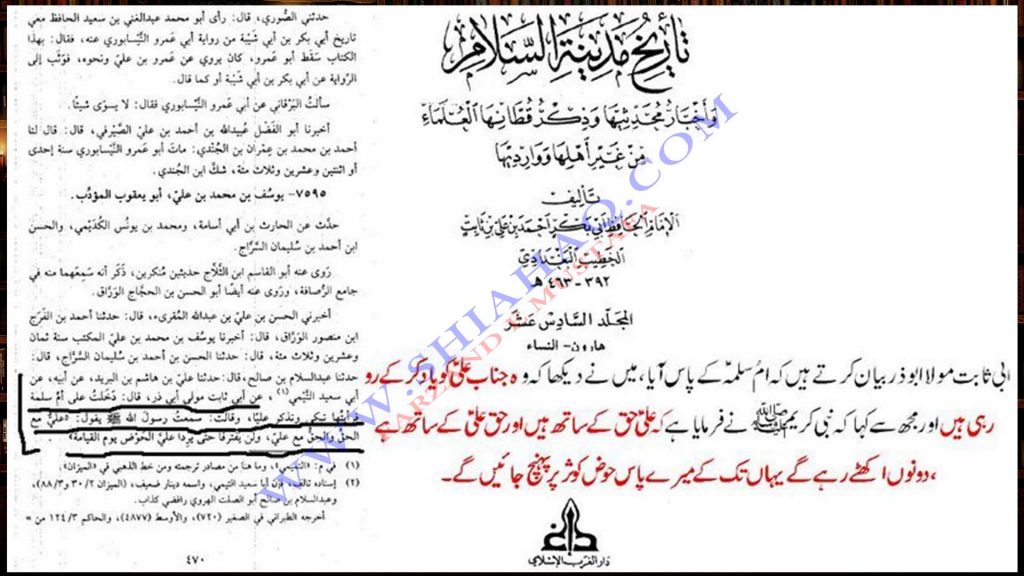 حدثني الصُّوري، قال: رأى أبو محمد عبدالغني بن سعيد الحافظ معي
تاريخ أبي بكر بن أبي شَيْبة من رواية أبي عَمرو النَّيْسابوري عنه، فقال: بهذا
الكتاب سَقَط أبو عَمرو، كان يروي عن عَمرو بن عليّ ونحوه، فوَثَب إلى
الرواية عن أبي بكر بن أبي شَيْبة أو كما قال.
سألتُ البَرْقاني عن أبي عَمرو النَّيْسابوري فقال: لا يسوَى شيئًا.
أخبرنا أبو الفَضْل عُبيدالله بن أحمد بن عليّ الصَّيْرفي، قال: قال لنا
أحمد بن محمد بن عِمْران بن الجُنْدي: ماتَ أبو عَمرو النَّيْسابوري سنة إحدى
أو اثنتين وعشرين وثلاث مئة، شكَّ ابن الجُندي.
٧٥٩٥- يوسُف بن محمد بن عليّ، أبو يعقوب المؤدِّب.
حدَّث عن الحارث بن أبي أسامة، ومحمد بن يونُس الكُدَيْمي، والحسن
ابن أحمد بن سُليمان السَّرَّاج.
رَوى عنه أبو القاسم ابن الثَّلَّاج حديثين مُنكرين، ذَكَر أنه سَمِعَهما منه في
جامع الرُّصافة، وروى عنه أيضًا أبو الحسن بن الحجَّاج الوَرَّاق.
أخبرني الحسن بن عليّ بن عبدالله المُقرىء، قال: حدثنا أحمد بن الفَرَج
ابن منصور الوَرَّاق، قال: أخبرنا يوسُف بن محمد بن عليّ المكتب سنة ثمان
وعشرين وثلاث مئة، قال: حدثنا الحسن بن أحمد بن سُليمان السَّرَّاج، قال:
حدثنا عبدالسلام بن صالح، قال: حدثنا عليّ بن هاشم بن البريد، عن أبيه، عن
أبي سعيد التَّيمي، عن أبي ثابت مولى أبي ذَر، قال: دَخَلتُ على أمِّ سَلَمة
فرأيتُها تبكي وتذكر عليًّا، وقالت: سمعتُ رسولَ الله ﷺ يقول: «عليٌّ مع
الحقِّ والحقُّ مع عليّ، ولن يفترقا حتى يردا عليَّ الحَوْض يوم القيامة»
(١) في م: «التميمي»، وما هنا من مصادر ترجمته ومن خط الذهبي في «الميزان».
(٢) إسناده تالف، فإن أبا سعيد التيمي، واسمه دينار ضعيف، (الميزان ٢/ ٣٠ و٣/ ٨٨)،
وعبدالسلام بن صالح أبو الصلت الهروي رافضي كذاب.
أخرجه الطبراني في الصغير (٧٢٠)، والأوسط (٤٨٧٧)، والحاكم ٣/ ١٢٤ من =
٤٧٠
تاريخ مدينة السلام
وأخبار محدثيها وذكر قطانها العلماء
من غير أهلها وواردیها
تأليف
الإمام الحافظ أبي بكر أحمد بن علي بن ثابت
الخطيب البغدادي
٣٩٢ - ٤٦٣ هـ
المجلد السادس عشر
هارون - النساء
ابی ثابت مولا ابوذر بیان کرتے ہیں کہ ام سلمہ کے پاس آیا، میں نے دیکھا کہ وہ جناب علیؑ کو یاد کر کے رو
رہی ہیں اور مجھ سے کہا کہ نبی کریم ﷺ نے فرمایا ہے کہ علیؑ حق کے ساتھ ہیں اور حق علیؑ کے ساتھ ہے
،دونوں اکھٹے رہے گے یہاں تک کے میرے پاس حوض کوثر پہنچ جائیں گے۔
دار الغرب الإسلامي
WWW.SHIAHAQ.COM